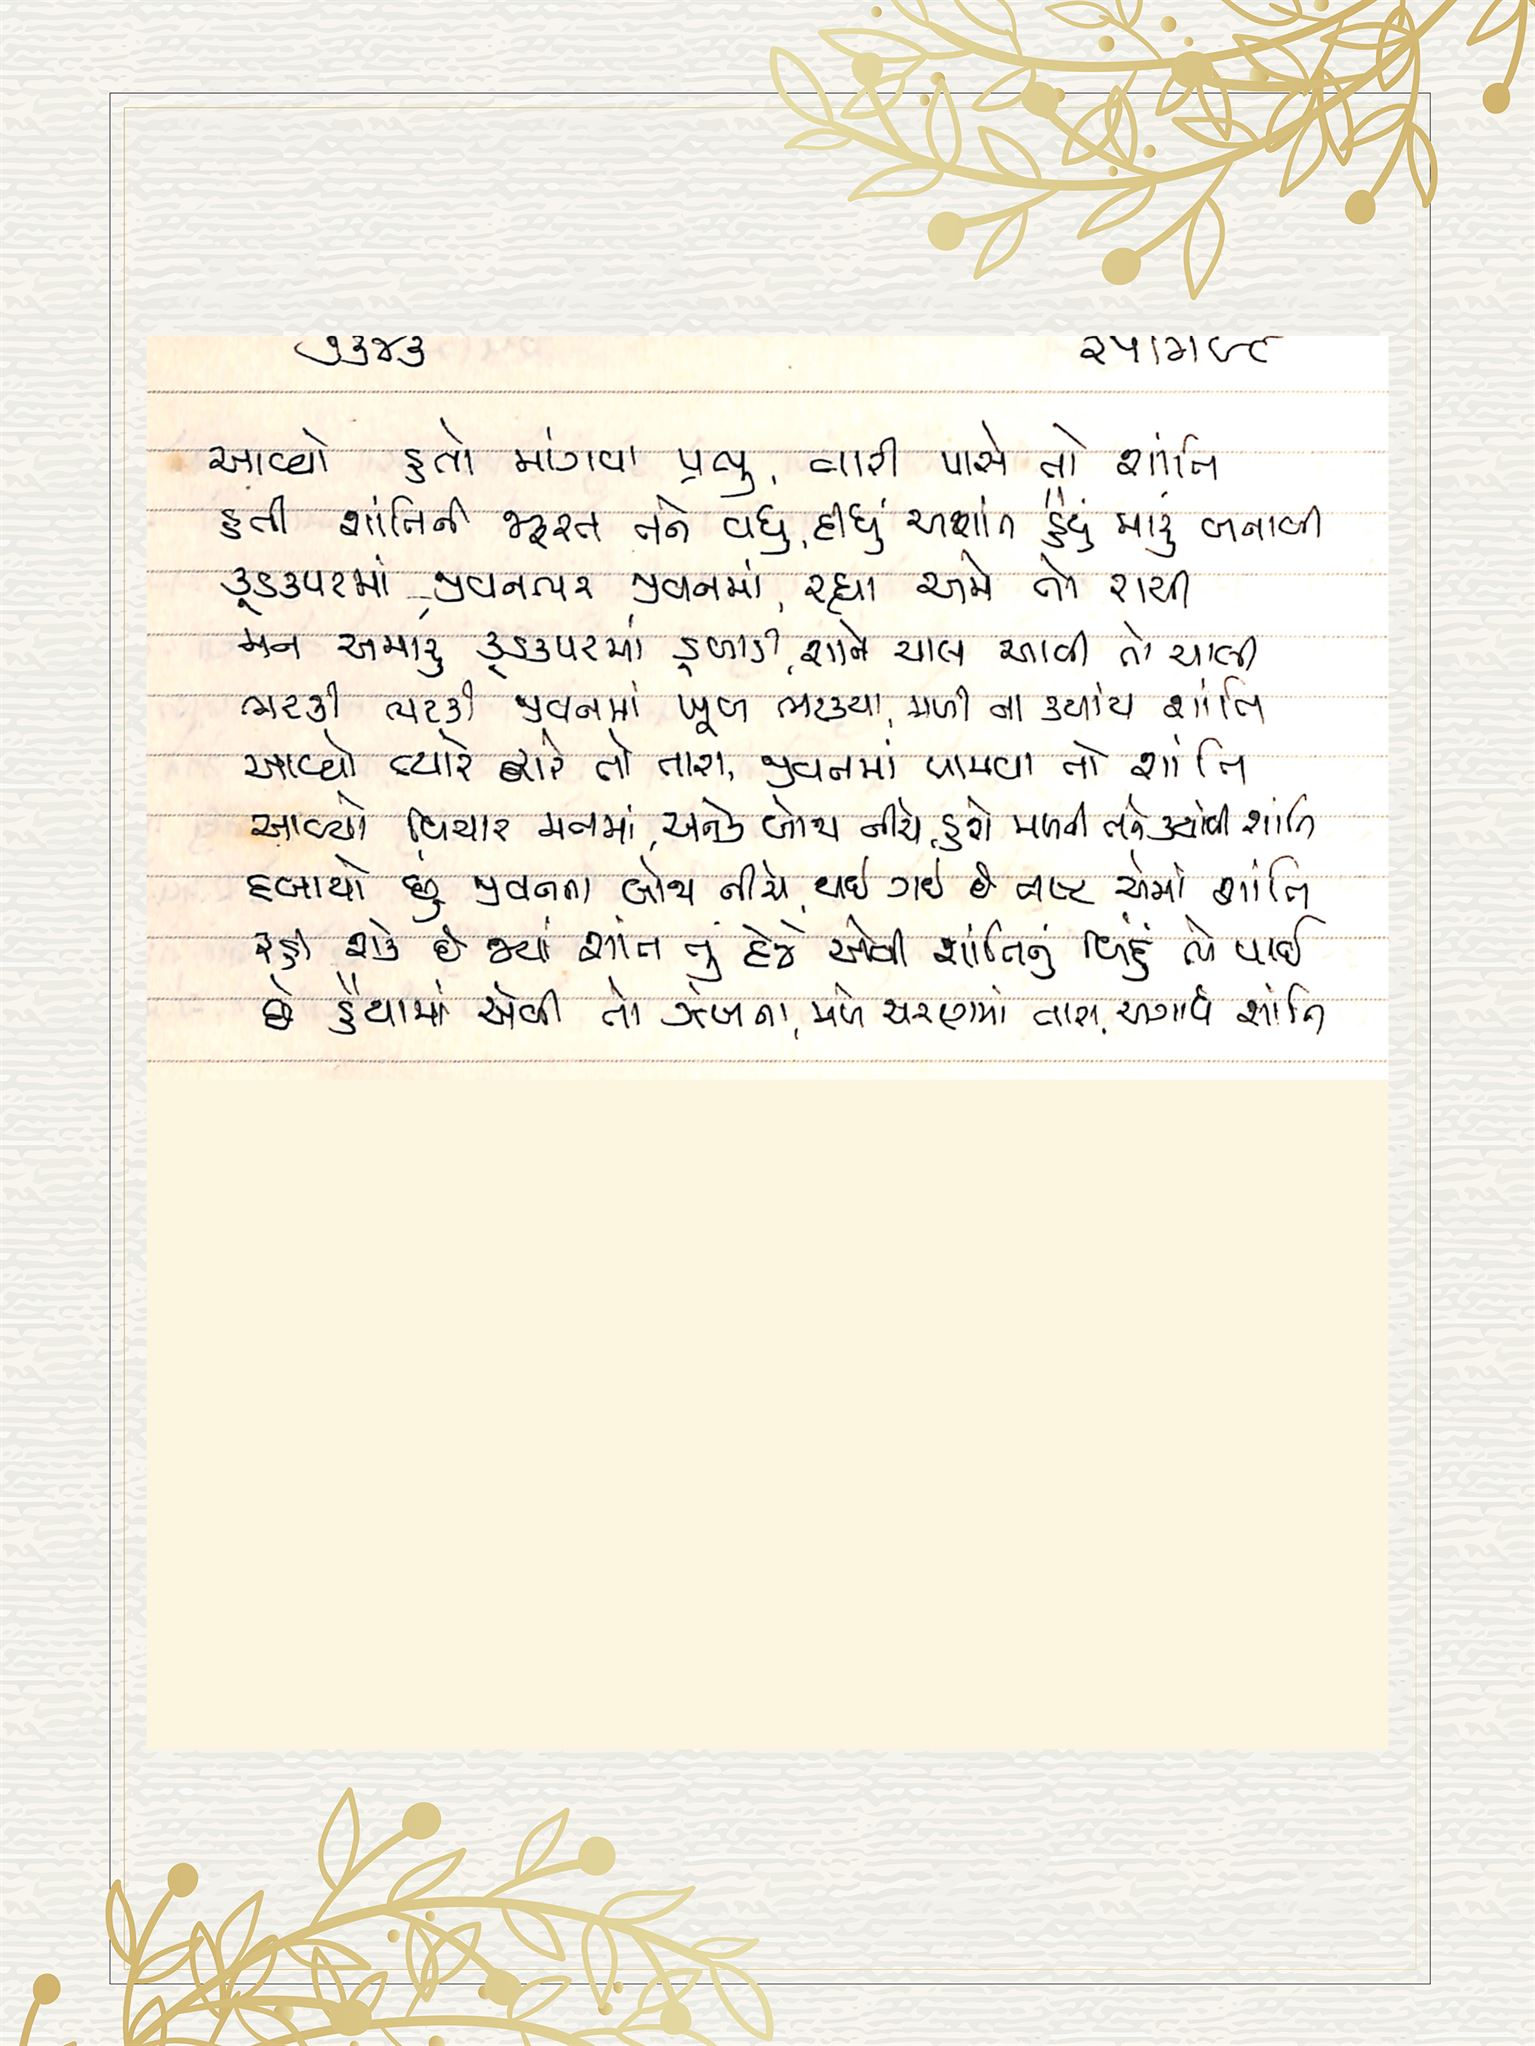 ૭૩૪૩
આવ્યો હતો માંગવા પ્રભુ, તારી પાસે તો શાંતિ
હતી શાંતિની જરૂરત તને વધુ, દીધું અશાંત હૈયું મારું બનાવી
કૂડકપટમાં જીવનભર જીવનમાં, રહ્યા અમે તો રાચી
મન અમારું કૂડકપટમાં ડૂબાડી, શાને ચાલ આવી તો ચાલી
ભટકી ભટકી જીવનમાં ખૂબ ભટક્યા, મળી ના ક્યાંય શાંતિ
આવ્યો જ્યારે દ્વારે તો તારા, જીવનમાં પામવા તો શાંતિ
આવ્યો વિચાર મનમાં, અનેક બોજ નીચે, હશે મળતી તને ક્યાંથી શાંતિ
દબાયો છું જીવનના બોજ નીચે, થઈ ગઈ છે નષ્ટ એમાં શાંતિ
રહી શકે છે જ્યાં શાંત તું હેજે એવી શાંતિનું બિંદુ તો પાઈ
છે હૈયામાં એવી તો ઝંખના, મળે ચરણમાં તારા, અગાધ શાંતિ